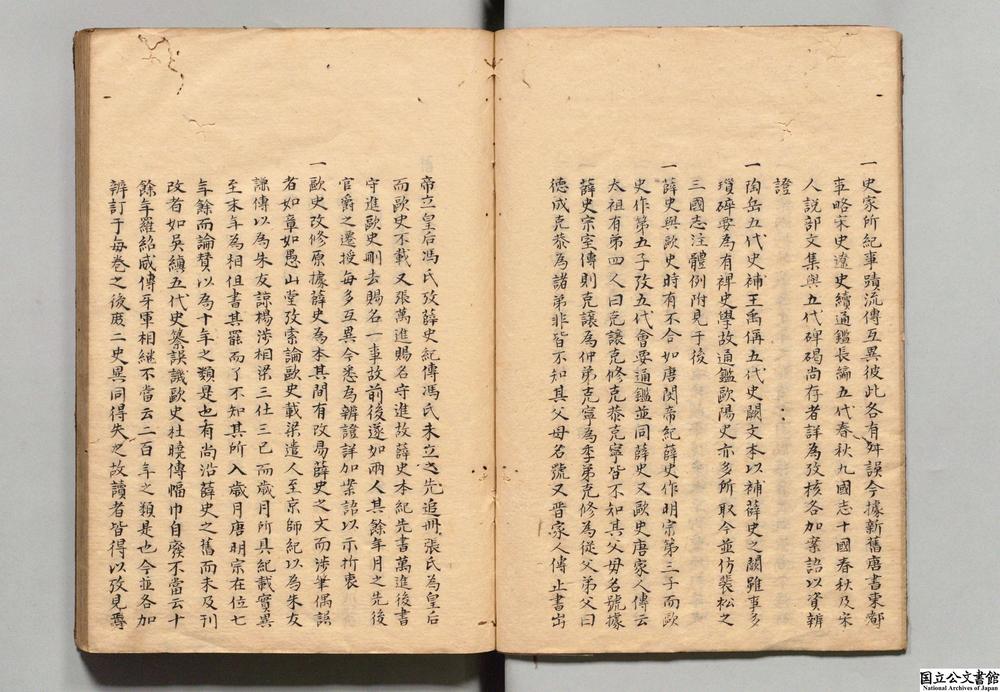 一史家所紀事蹟流傳互異彼此各有舛誤今據新舊唐書東都
事略宋史遼史續通鑑長編五代春秋九國志十國春秋及宋
人説部文集與五代碑碣尚存者詳為攷核各加案語以資辨
證
一陶岳五代史補王禹偁五代史闕文本以補薛史之闕雖事多
瑣碎要為有裨史學故通鑑歐陽史亦多所取今並仿裴松之
三國志注體例附見于後
一薛史與歐史時有不合如唐閔帝紀薛史作明宗第三子而歐
史作第五子攷五代會要通鑑並同薛史又歐史唐家人傳云
太祖有弟四人曰克讓克修克恭克寧皆不知其父母名號據
薛史宗室傳則克讓為仲弟克寧為季弟克修為從父弟父曰
德成克恭為諸弟非皆不知其父母名號又晉家人傳止書出
帝立皇后馮氏攷薛史紀傳馮氏未立之先追冊張氏為皇后
而歐史不載又張萬進賜名守進故薛史本紀先書萬進後書
守進歐史刪去賜名一事故前後遂如兩人其餘年月之先後
官爵之遷授每多互異今悉為辨證詳加案語以示折衷
一歐史改修原據薛史為本其間有改易薛史之文而涉筆偶誤
者如章如愚山堂攷索論歐史載梁遣人至京師紀以為朱友
謙傳以為朱友諒楊涉相梁三仕三已而歲月所具紀載實異
至末年為相但書其罷而了不知其所入歲月唐明宗在位七
年餘而論贊以為十年之類是也有尚沿薛史之舊而未及刊
改者如吳縝五代史纂誤譏歐史杜曉傳幅巾自廢不當云十
餘年羅紹威傳牙軍相繼不當云二百年之類是也今並各加
辨訂于每卷之後庶二史異同得失之故讀者皆得以攷見焉
国立公文書館
National Archives of Japan